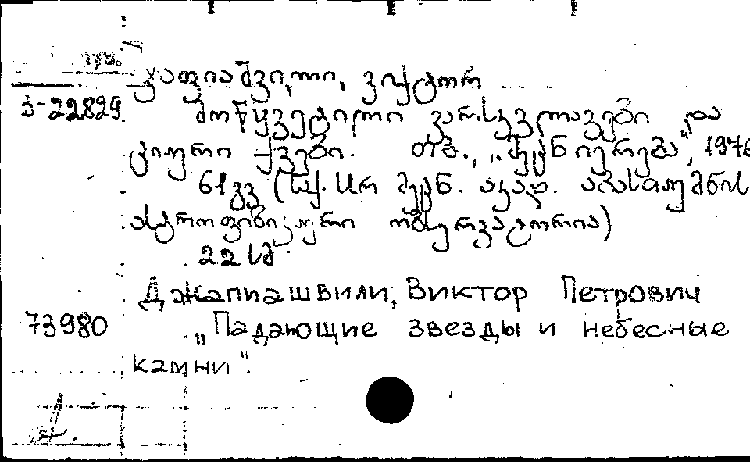 ჯაფიაშვილი, ვიქტორ
3-22829
მოწყვეტილი ვარსკვლავები და
ციური ქვები. თბ., „მეცნიერება“, 1976
61 გვ (საქ. სსრ მეცნ. აკად. აბასთუმნის
ასტროფიზიკური ობსერვატორია)
22 სმ
Джапиашвили, Виктор Петрович
73980 „Падающие звезды и небесные
камни“.